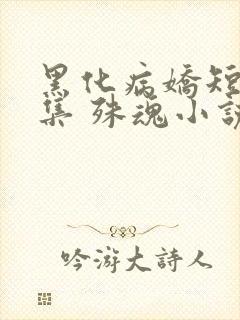 黑化病嬌短
集 殊魂小說
吟游大詩人